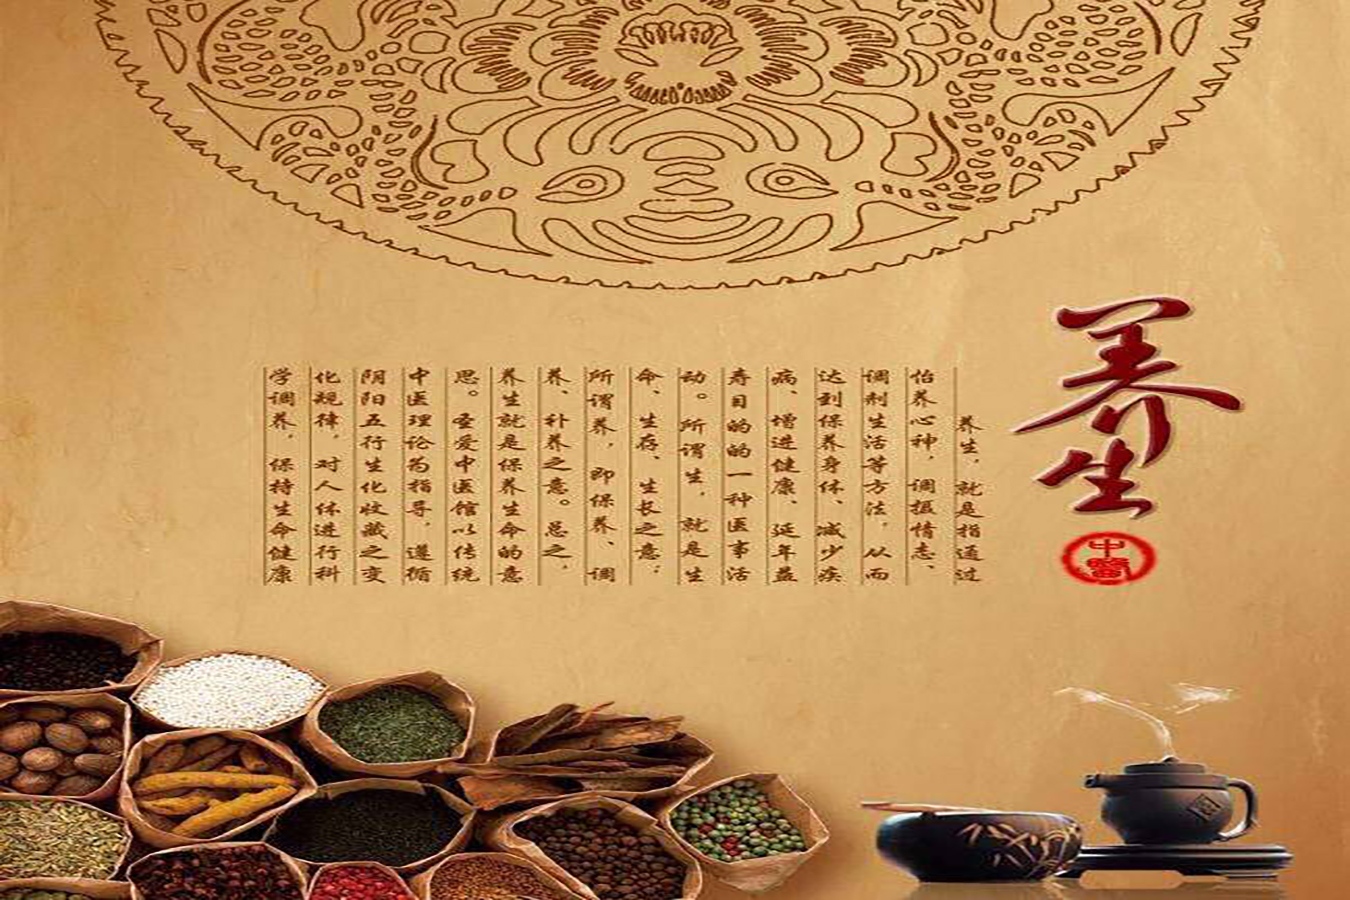 养生
中醫
养生,就是指通过
怡养心神,调摄情志、
调剂生活等方法,从而
达到保养身体、减少疾
病、增进健康、延年益
寿目的的一种医事活
动。所谓生,就是生
命、生存、生长之意;
所谓养,即保养、调
养、补养之意。总之,
养生就是保养生命的意
思。圣爱中医馆以传统
中医理论为指导,遵循
阴阳五行生化收藏之变
化规律,对人体进行科
学调养,保持生命健康